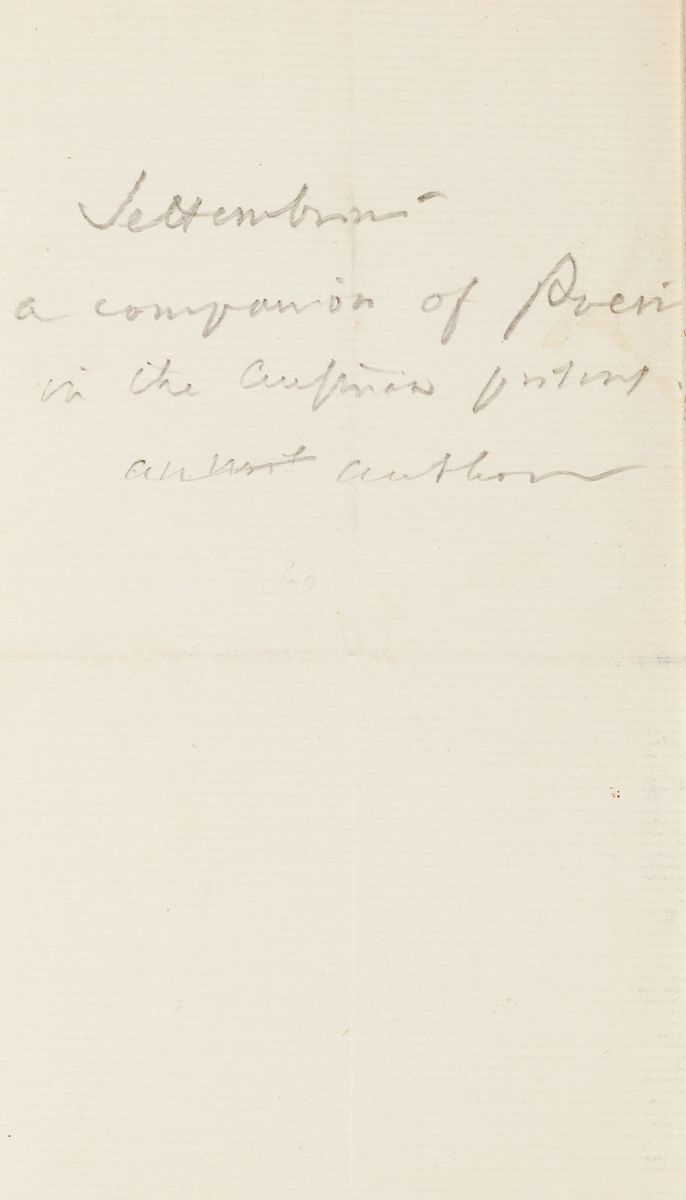 Settembrini
a companion of Poeri
in the Austrian prisons.
an author